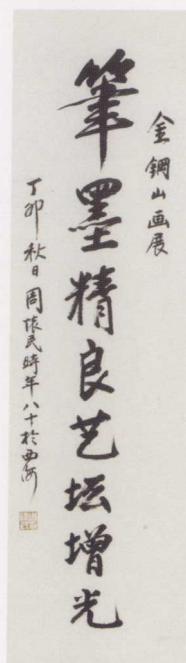 金鋼山画展
筆墨精良艺坛增光
丁卯秋日周怀民時年八十於西安